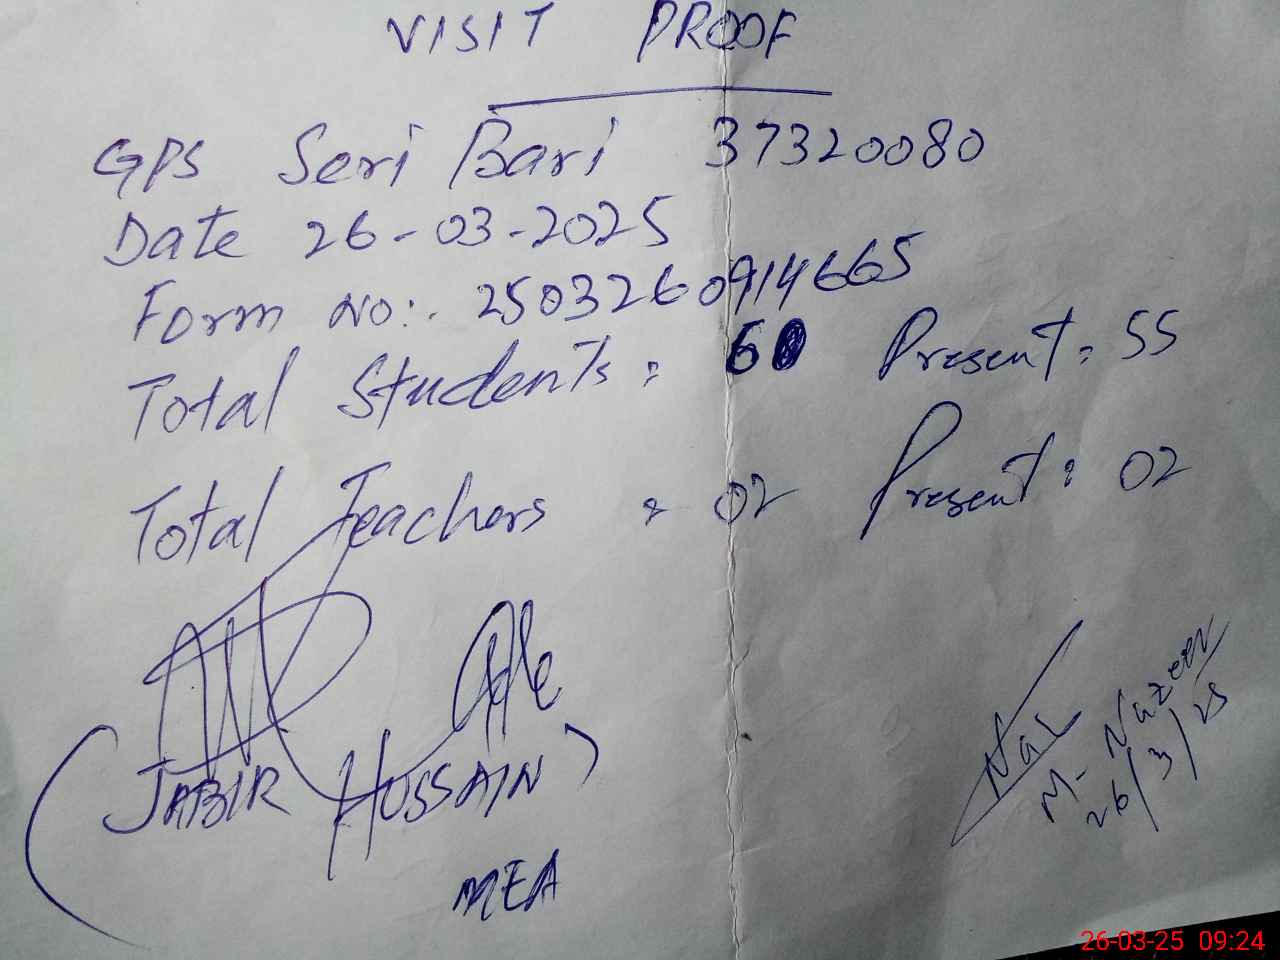 VISIT PROOF
GPS Seri Bari 37320080
Date 26-03-2025
Form no:. 2503260914665
Total Students: 60 Present: 55
Total Teachers : 02 Present: 02
(JABIR HUSSAIN)
MEA
M. Nazeer
26/3/25
26-03-25 09:24